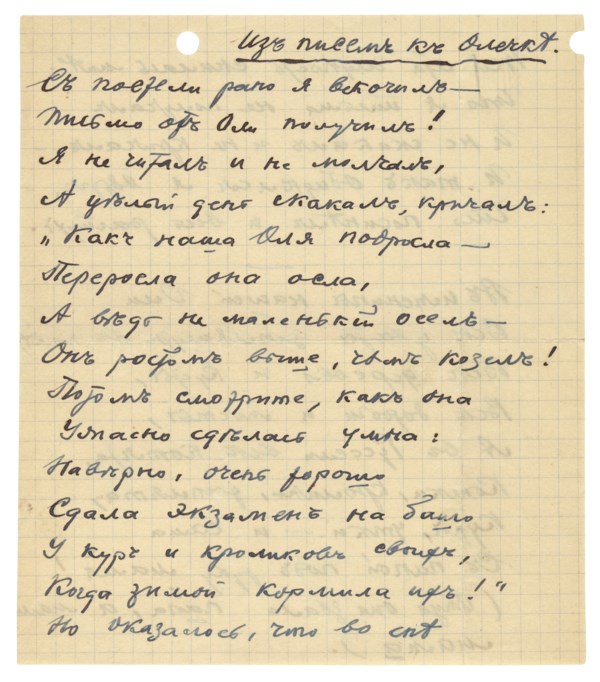 Изъ писемъ къ Олечкѣ.
Съ постели рано я вскочилъ—
Письмо отъ Оли получилъ!
Я не читалъ и не молчалъ,
А цѣлый день скакалъ, кричалъ:
„Какъ наша Оля подросла—
Переросла она осла,
А вѣдь не маленькій оселъ—
Онъ ростомъ выше, чѣмъ козелъ!
Потомъ смотрите, какъ она
Ужасно сдѣлалась умна:
Навѣрно, очень хорошо
Сдала экзаменъ на
У куръ и кроликовъ своихъ,
Когда зимой кормила ихъ!“
Но оказалось, что во снѣ